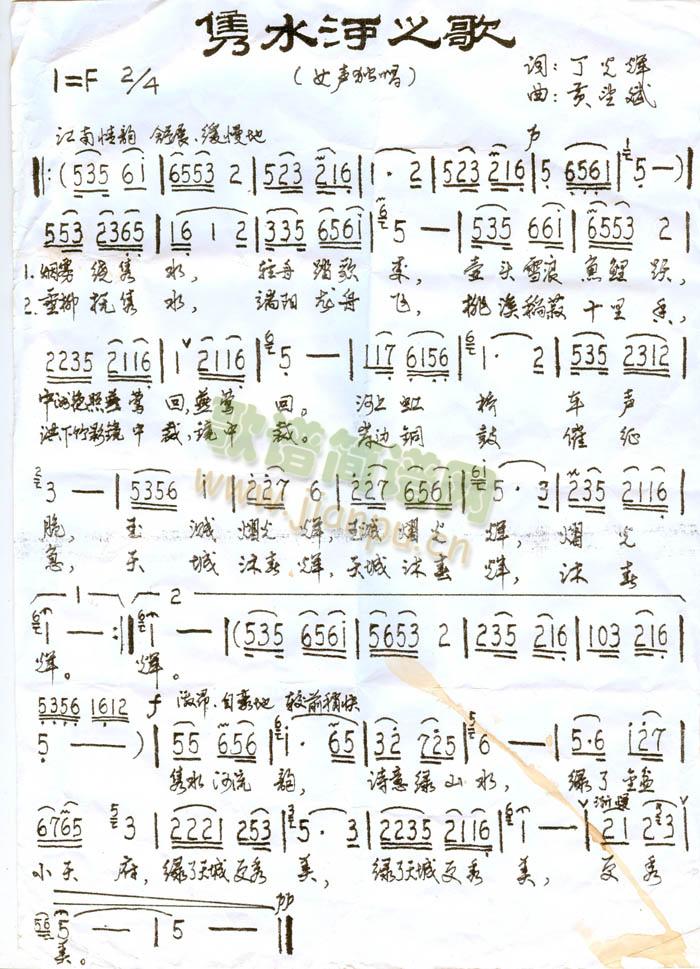 隽水河之歌
(女声独唱)
1=F 2/4
词:丁光辉
曲:黄望斌
江南情韵 舒展、缓慢地
‖:(535 61|6553 2|523 216|1·2|523 216|5 6561|5—)|
553 2365|16 1 2|335 6561|5—|535 661|6553 2|
1.烟雾绕隽水, 驻舟踏歌来, 壶头雪浪鱼鲤跃,
2.垂柳抚隽水, 端阳龙舟飞, 桃溪稻菽十里香,
2235 2116|1 2116|5—|117 6156|1·2|535 2312|
中洲艳照燕莺回,燕莺回。 河上虹桥车声
洪下竹影镜中裁,镜中裁。 岸边铜鼓催征
3—|5356 1|227 6|227 6561|5·3|235 2116|
脆, 玉城熠光辉,玉城熠光辉, 熠光
急, 天城沐春辉,天城沐春辉, 沐春
1 2
1—:‖1—|(535 6561|5653 2|235 216|103 216|
辉。 辉。
5356 1612 f 激昂、自豪地 较前稍快
5—)|55 656|1·65|32 725|6—|5·6 127|
隽水河流韵, 诗意绿山水, 绿了
渐慢
6765 3|2221 253|5·3|2235 2116|1—|21 23|
小天府,绿了天城更秀美, 绿了天城更秀美, 更秀
pp
5—|5—‖
美。
歌谱简谱网
www.jianpu.cn